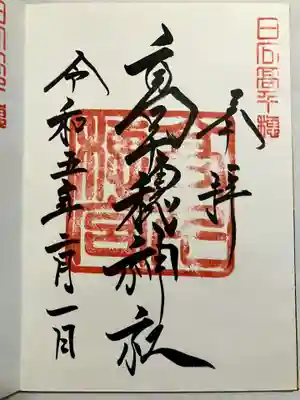 日向高千穂
奉拝
高千穂神社
令和五年一月一日